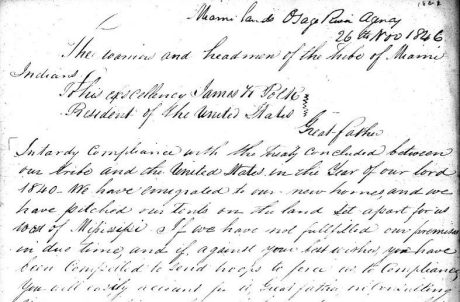 Miami lands Osage River Agency
26th Nov 1846
The warriors and headmen of the tribe of Miami
Indians
To His excellency James K Polk
President of the United States
Great father
In tardy Compliance with the treaty concluded between
our tribe and the United States in the Year of our lord
1840 - We have emigrated to our new homes and we
have pitched our tents on the land Set apart for us
West of Missisipi If we have not fulfilled our promises
in due time, and if against your best wishes, you have
been Compelled to send troops to force us to compliance
You will easily account for it, Great father, in consulting